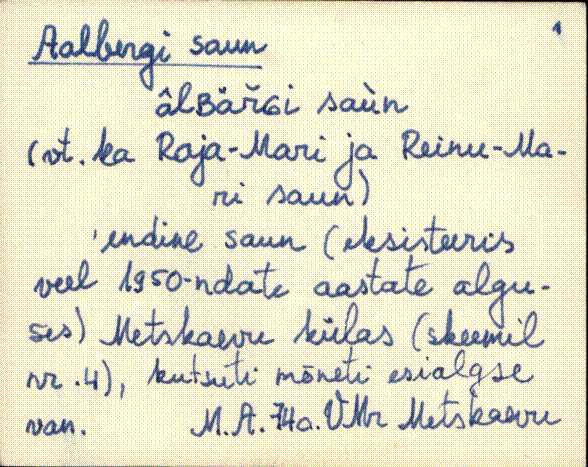 1
Aalbergi saun
âlBär̆Gi saùn
(vt. ka Raja-Mari ja Reinu-Ma-
ri saun)
'endine saun (eksisteeris
veel 1950-ndate aastate algu-
ses) Metskaevu külas (skeemil
nr. 4), kutsuti mõneti esialgse
van. M.A. 74a. VMr Metskaevu